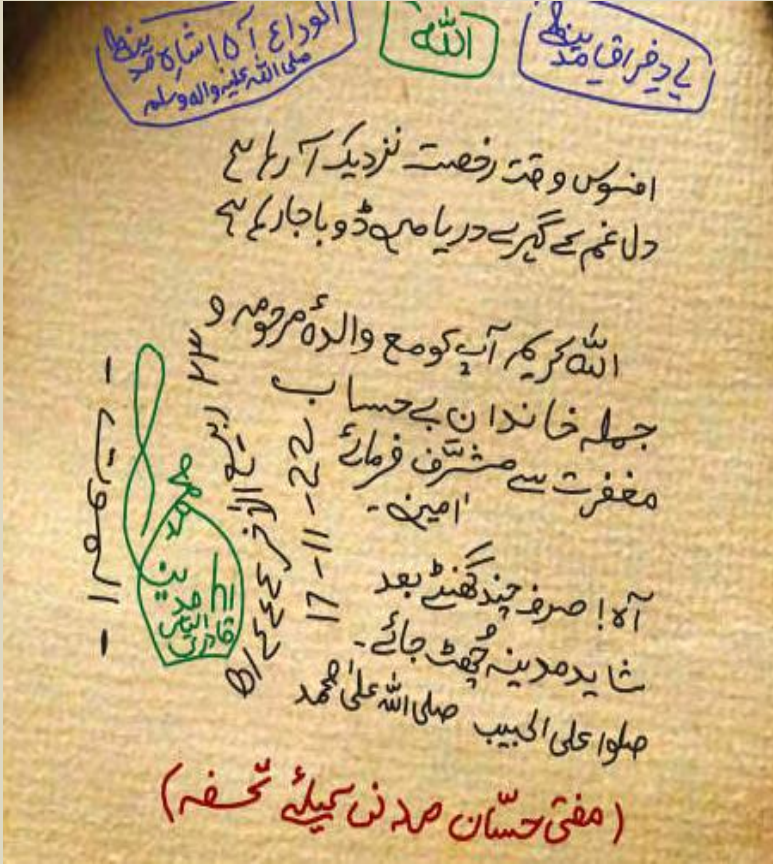 ہائے فراقِ مدینہ
اللہ
الوداع آہ! شاہِ مدینہ
صلی اللہ علیہ والہ وسلم
افسوس وقتِ رخصت نزدیک آ رہا ہے
دل غم کے گہرے دریا میں ڈوبا جا رہا ہے
اللہ کریم آپ کو مع والدۂ مرحومہ و
جملہ خاندان بے حساب
مغفرت سے مشرَّف فرمائے
امین۔
آہ! صرف چند گھنٹے بعد
شاید مدینہ چُھٹ جائے۔
صلوا علی الحبیب صلی اللہ علیٰ محمد
۲۳ ربیع الآخر ۱۴۴۴ھ
17-11-22
محمد
الیاس
قادری
(مفتی حسّان مدنی کیلئے تحفہ)